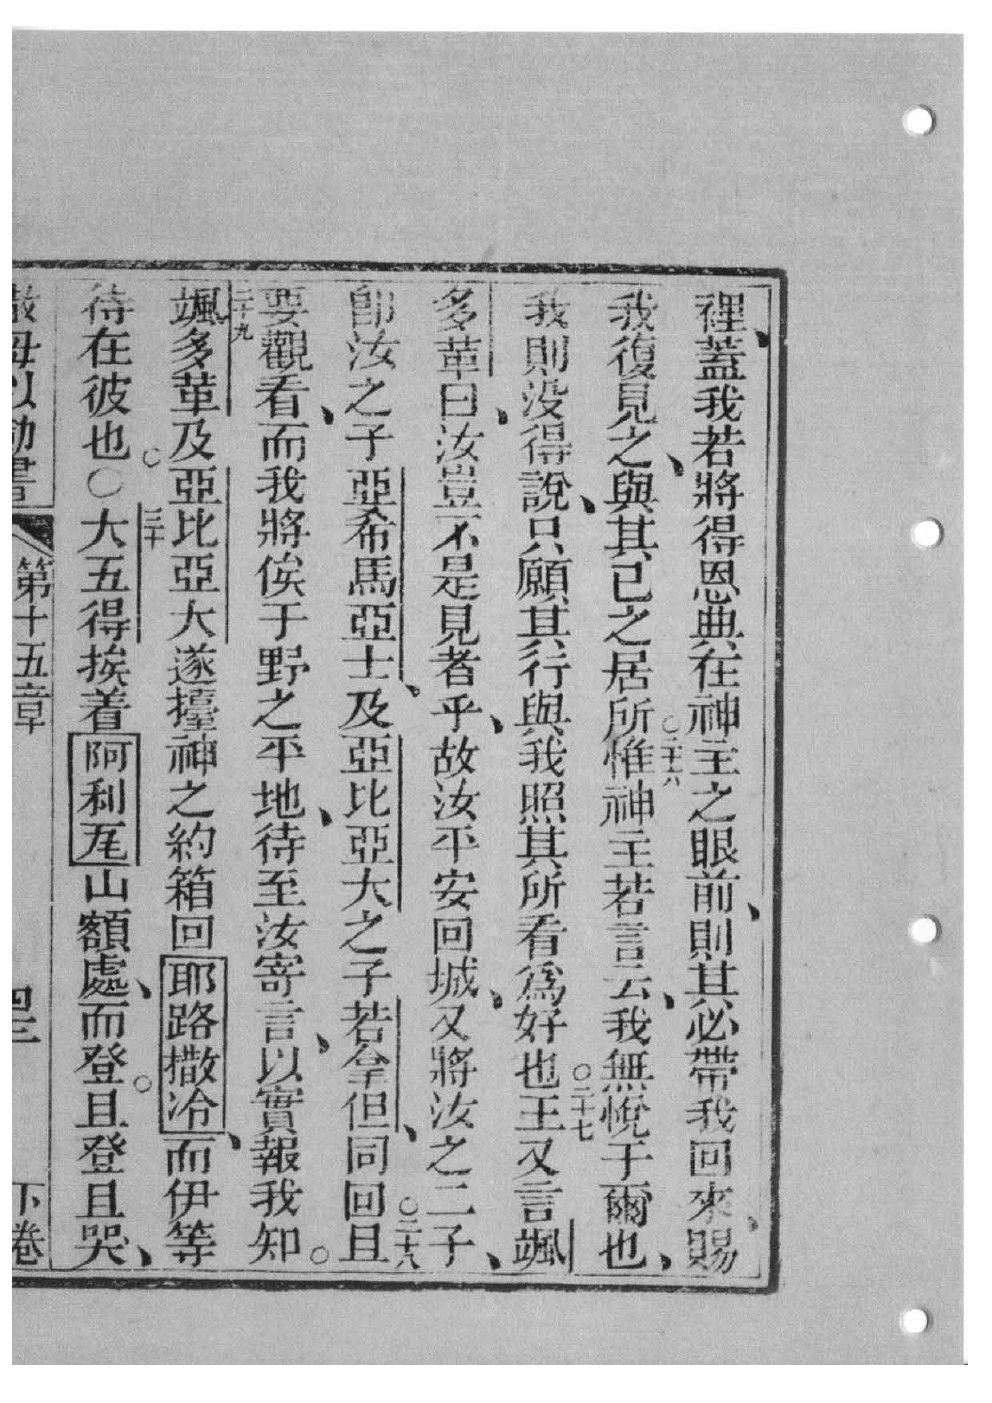 裡、蓋我若將得恩典在神主之眼前、則其必帶我回來、賜
我復見之、與其己之居所○二十六惟神主若言云、我無悅于爾也、
我則没得說、只願其行與我照其所看爲好也○二十七王又言颯
多革曰、汝豈不是見者乎、故汝平安回城、又將汝之二子、
卽汝之子亞希馬亞士、及亞比亞大之子若拿但、同回○二十八且
要觀看、而我將俟于野之平地、待至汝寄言、以實報我知。
二十九颯多革及亞比亞大遂擡神之約箱回耶路撒冷、而伊等
待在彼也。○三十大五得挨着阿利厎山額處、而登、且登且哭、
撒母以勒書 第十五章 四三 下卷